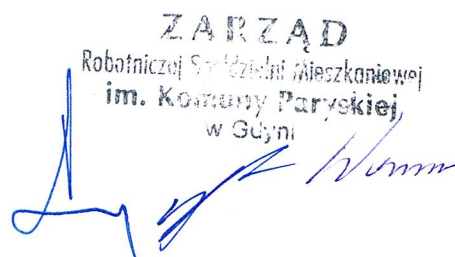 ZARZĄD
Robotniczej Spółdzielni Mieszkaniowej
im. Komuny Paryskiej
w Gdyni